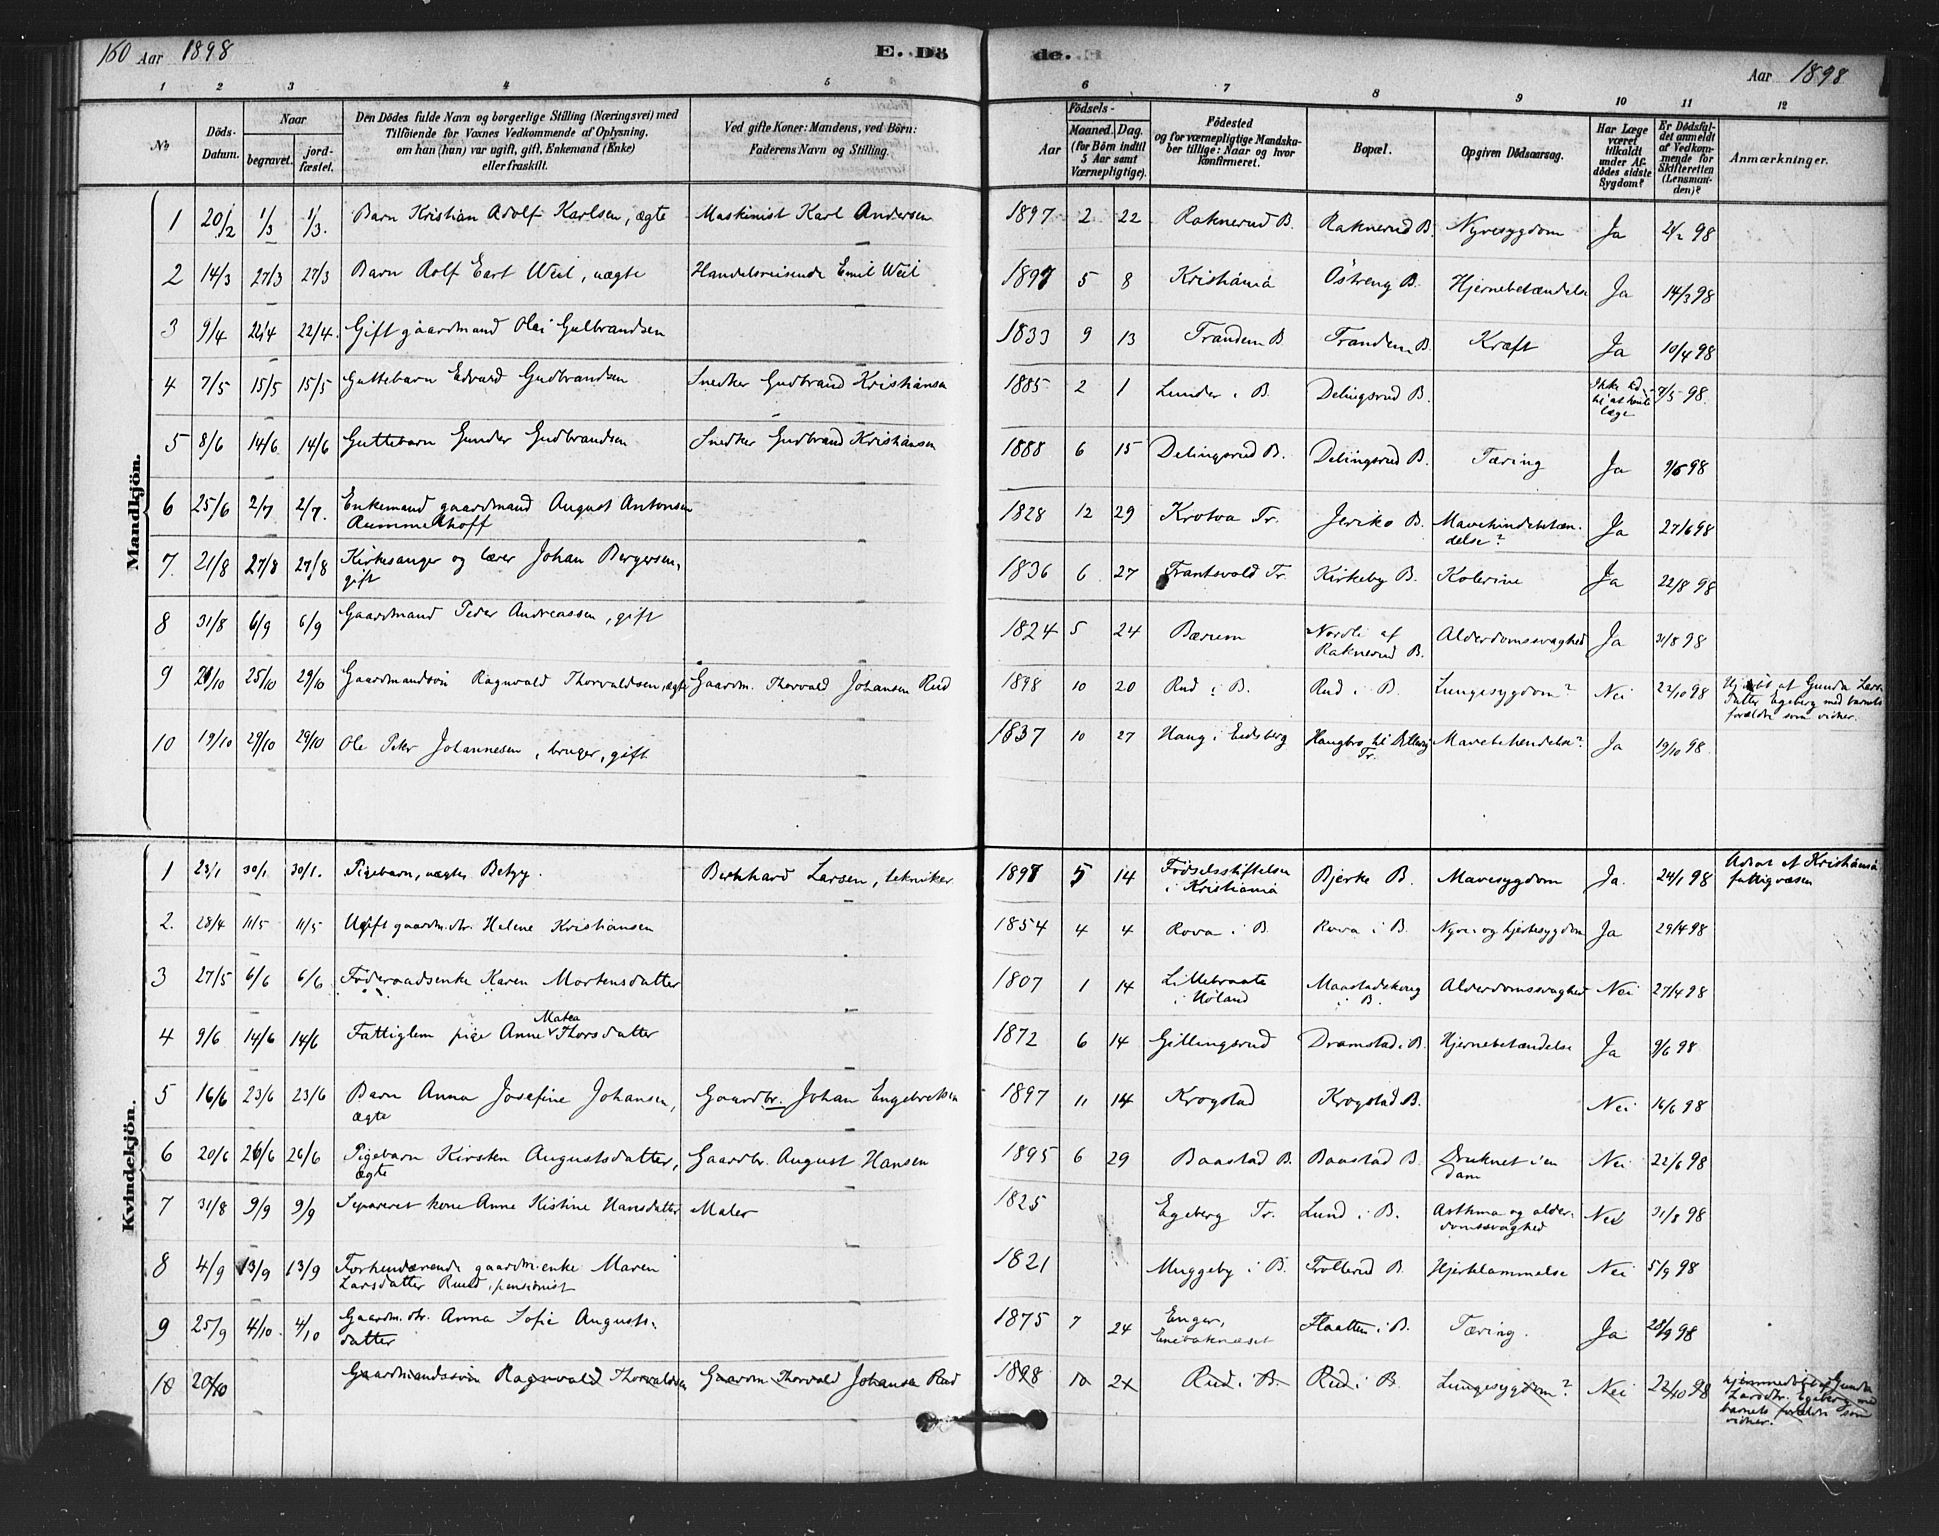 160 Aar 1898 E. Dö
de. Aar 1898
1 2 3 4 5
6 7 8 9 10 11 12
No
Döds-Datum.
Naar
begravet. jordfæstet.
Den Dödes fulde Navn og borgerlige Stilling (Næringsvei) med
Tilföiende for Voxnes Vedkommende af Oplysning,
om han (hun) var ugift, gift, Enkemand (Enke)
eller fraskilt.
Ved gifte Koner: Mandens, ved Börn:
Faderens Navn og Stilling.
Födsels-
Aar Maaned. Dag.
(for Börn indtil
5 Aar samt
Værnepligtige).
Födested
og for værnepligtige Mandska-
ber tillige: Naar og hvor
konfirmeret.
Bopæl.
Opgiven Dödsaarsag.
Har Læge
været
tilkaldt
under Af-
dödes sidste
Sygdom?
Er Dödsfal-
det anmeldt
af Vedkom-
mende for
Skifteretten
(Lensman-
den)?
Anmærkninger.
Mandkjön.
1 20/2 1/3 1/3. Barn Kristian Adolf Karlsen, ægte Maskinist Karl Andersen 1897 2 22 Raknerud B. Raknerud B. Nyresygdom Ja 2/2 98
2 14/3 27/3 27/3 Barn Rolf Eart Weil, uægte Handelsreisende Emil Weil 1897 5 8 Kristiania Östreng B. Hjernebetændelse Ja 14/3 98
3 9/4 22/4 22/4. Gift gaardmand Olai Gulbrandsen 1833 9 13 Trandem B Trandem B. Kræft Ja 10/4 98
4 7/5 15/5 15/5 Guttebarn Edvard Gudbrandsen Snedker Gudbrand Kristiansen 1885 2 1 Lunder i B. Delingsrud B. Ikke tid
til at hente
læge 7/5 98.
5 8/6 14/6 14/6 Guttebarn Gunder Gudbrandsen Snedker Gudbrand Kristiansen 1888 6 15 Delingsrud B. Delingsrud B. Tæring Ja 9/6 98
6 25/6 2/7 2/7. Enkemand gaardmand August Antonsen
Rummelhoff 1828 12 29 Krotva Tr. Jeriko B. Mavehindebetæn-
delse? Ja 27/6 98
7. 21/8 27/8 27/8 Kirkesanger og lærer Johan Bergersen,
gift 1836 6 27 Trantsvold Tr. Kirkeby B. Kolerine Ja 22/8 98
8 31/8 6/9 6/9 Gaardmand Peder Andreassen, gift 1824 5 24 Bærum Nordli af
Raknerud B. Alderdomssvaghed Ja 31/8 98
9 21/10 25/10 29/10 Gaardmandssön Ragnvald Thorvaldsen, ægte Gaardm. Thorvald Johansen Rud 1898 10 20 Rud i B. Rud i B. Lungesygdom? Nei 22/10 98 af Gunda Lars-
datter Egeberg med barnets
forældre som vidner.
10 19/10 29/10 29/10 Ole Peter Johannesen, bruger, gift 1837 10 27 Haug i Eidsberg Haugbro Tr. Mavebetændelse? Ja 19/10 98.
Kvindekjön.
1 23/1 30/1 30/1. Pigebarn, uægte Betzy. Bernhard Larsen, tekniker 1897 5 14 Födselsstiftelsen
i Kristiania Bjerke B. Mavesygdom Ja. 24/1 98 Adsat af Kristiania
fattigvæsen
2. 28/4 11/5 11/5 Ugift gaardm.dtr. Helene Kristiansen 1854 4 4 Rova i B. Rova i B. Nyre- og hjertesygdom Ja 29/4 98
3 27/5 6/6 6/6 Föderaadsenke Karen Mortensdatter 1807 1 14 Lillebraate
i Höland Maastadskoug
i B. Alderdomssvaghed Nei 27/4 98
4 9/6 14/6 14/6 Fattiglem pige Anne Matea Thorsdatter 1872 6 14 Gillingsrud Dramstad i B. Hjernebetændelse Ja 9/6 98
5 16/6 23/6 23/6 Barn Anna Josefine Johansen,
ægte Gaardbr. Johan Engebretsen 1897 11 14 Krogstad Krogstad B. Nei 16/6 98
6 20/6 26/6 26/6 Pigebarn Kirsten Augustsdatter,
ægte Gaardbr. August Hansen 1895 6 29 Baastad B. Baastad B. Druknet i en
dam Nei 22/6 98
7 31/8 9/9 9/9 Separeret kone Anne Kistine Hansdatter Maler 1825 Egeberg Tr. Lund i B. Asthma og alder-
domssvaghed Nei 31/8 98
8 4/9 13/9 13/9 Forhenværende gaardm.enke Maren
Larsdatter Ruud, pensionist 1821 Muggeby i B. Trollerud B. Hjertelammelse Nei 5/9 98
9 25/9 4/10. 4/10 Gaardm.dtr. Anna Sofie Augusts-
datter 1875 7 24 Enger,
Enebaknæset Flaatten i B. Tæring. Ja 28/9 98
10 20/10 Gaardmandssön Ragnvald Thorvaldsen Gaardm Thorvald Johansen Rud 1898 10 21 Rud i B. Rud i B Lungesygdom? Nei 22/10 98 hjemmedöbt af Gunda
Larsdtr. Egeberg med
barnets forældre som
vidner.